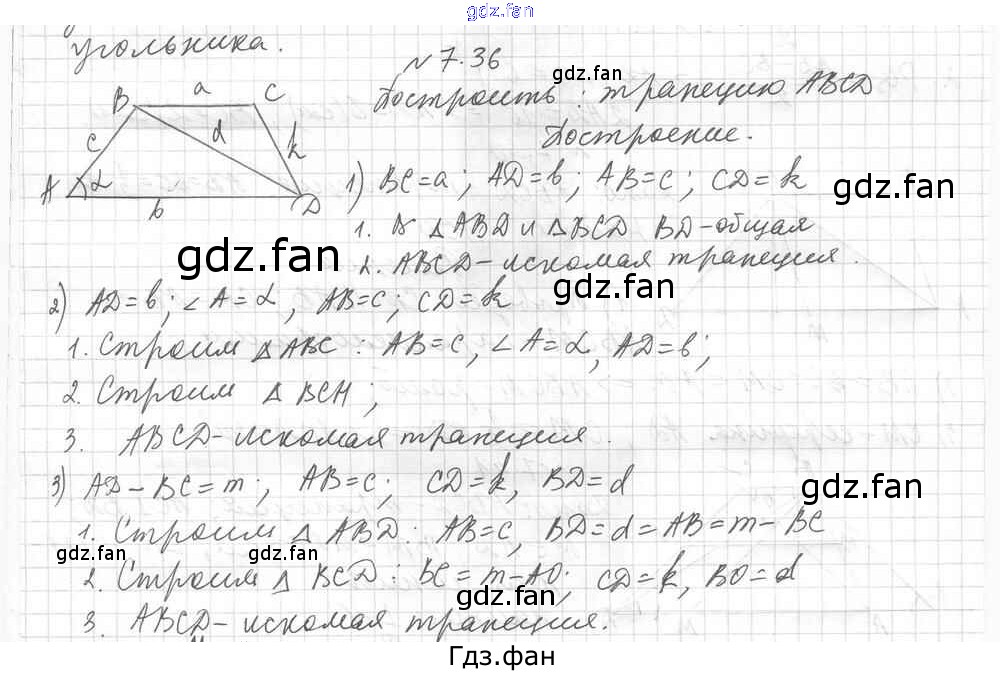 gdz.fan
угольника.
№7.36
gdz.fan
Построить: трапецию ABCD
Построение.
B a C
c d k
A α b D
1) BC=a; AD=b; AB=c; CD=k
gdz.fan
1. ΔABD и ΔBCD BD-общая
gdz.fan
2. ABCD-искомая трапеция.
gdz.fan
2) AD=b; ∠A=α, AB=c; CD=k
1. Строим ΔABC: AB=c, ∠A=α, AD=b;
2. Строим ΔBCH;
gdz.fan
3. ABCD-искомая трапеция.
3) AD-BC=m; AB=c; CD=k, BD=d
gdz.fan
1. Строим ΔABD: AB=c, BD=d=AB=m-BC
gdz.fan gdz.fan
2. Строим ΔBCD: BC=m-AD; CD=k, BD=d
gdz.fan
3. ABCD-искомая трапеция.
Гдз.фан